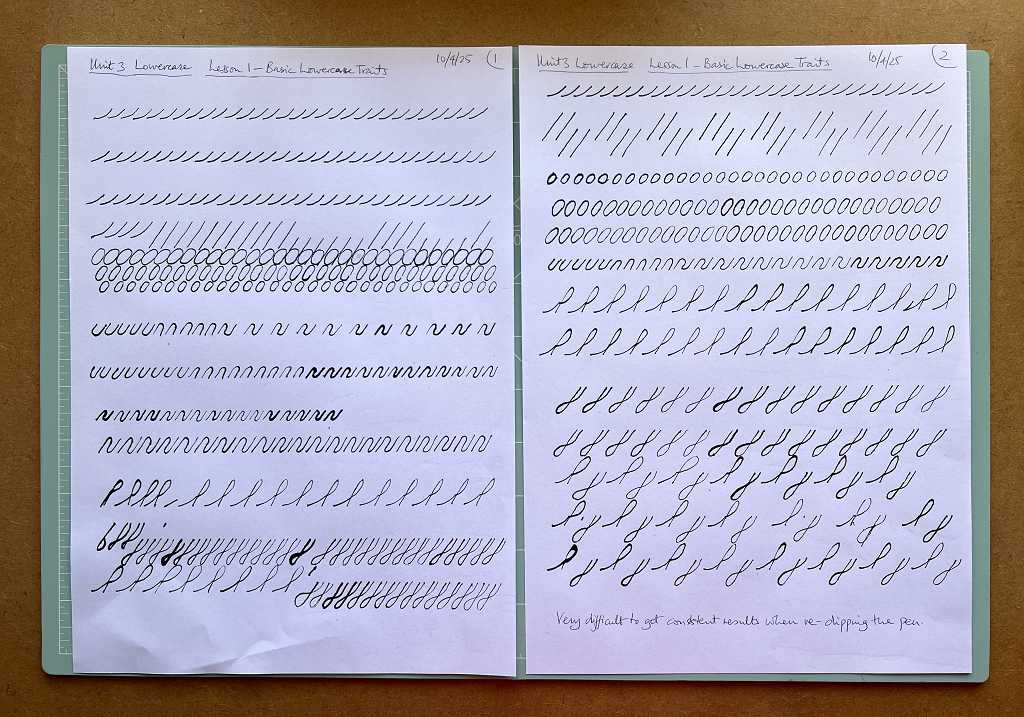 Unit 3 Lowercase Lesson 1 - Basic Lowercase Traits 10/4/25 1
Unit 3 Lowercase Lesson 1 - Basic Lowercase Traits 10/4/25 2
Very difficult to get consistent results when re-dipping the pen.